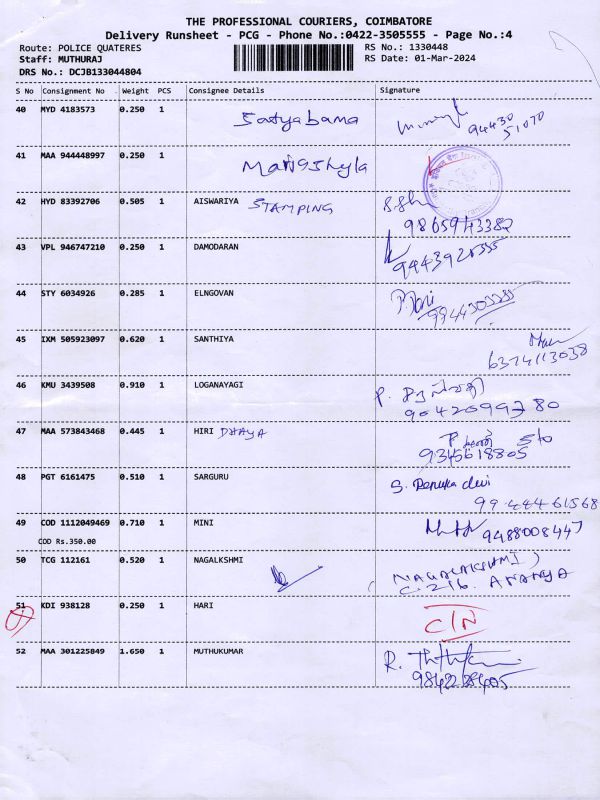 THE PROFESSIONAL COURIERS, COIMBATORE
Delivery Runsheet - PCG - Phone No.:0422-3505555 - Page No.:4
Route: POLICE QUATERES RS No.: 1330448
Staff: MUTHURAJ RS Date: 01-Mar-2024
DRS No.: DCJB133044804
S No Consignment No Weight PCS Consignee Details Signature
40 MYD 4183573 0.250 1 Satyabama 94430
51070
41 MAA 944448997 0.250 1
42 HYD 83392706 0.505 1 AISWARIYA STAMPING
9865943382
43 VPL 946747210 0.250 1 DAMODARAN
44 STY 6034926 0.285 1 ELNGOVAN
45 IXM 505923097 0.620 1 SANTHIYA
6374113038
46 KMU 3439508 0.910 1 LOGANAYAGI
47 MAA 573843468 0.445 1 HIRI DHAYA S/o
9345618805
48 PGT 6161475 0.510 1 SARGURU S. Renuka devi
99444 61568
49 COD 1112049469 0.710 1 MINI 9488008447
COD Rs.350.00
50 TCG 112161 0.520 1 NAGALKSHMI NAGALAKSHMI
C-216. ANANYA
51 KDI 938128 0.250 1 HARI C/N
52 MAA 301225849 1.650 1 MUTHUKUMAR